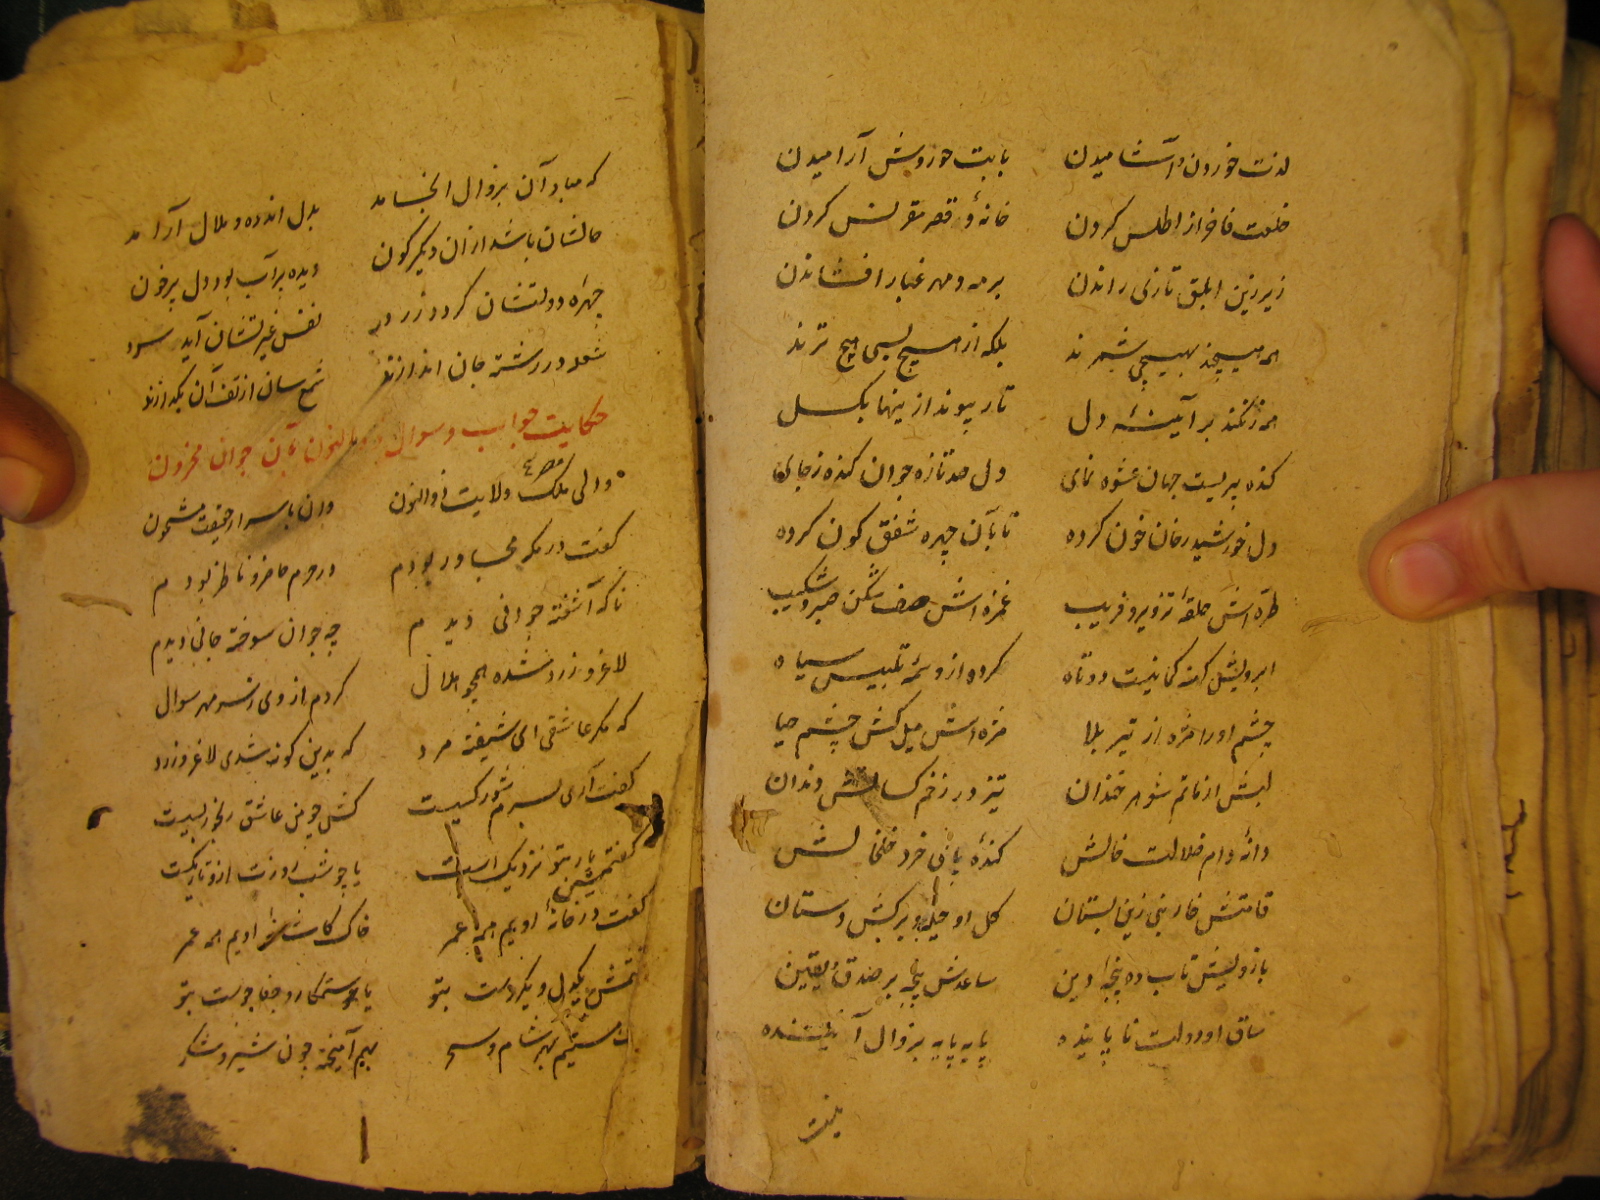 لذت خوردن و آشامیدن بابت حوروش آرامیدن
خلعت فاخر از اطلس کردن خانهٔ و قصر مقرنس کردن
زیر زین ابلق تازی راندن بر مه و مهر غبار افشاندن
همه هیچند بهیچی شمرند بلکه از هیچ بسی هیچ ترند
تار پیوند ازینها بگسل
کنده پیریست جهان عشوه نمای دل صد تازه جوان کنده ز جای
دل خورشید رخان خون کرده تا بآن چهره شفق کون کرده
طره اش حلقهٔ تزویر و فریب غمزه اش صف شکن صبر و شکیب
ابرویش کهنه کمانیست دوتاه کرده از وسمهٔ تلبیس سیاه
چشم او را مژه از تیر بلا مژه اش میل کش چشم حیا
لبش از ماتم شوهر خندان تیز در زخم کسانش دندان
دانه دام ضلالت خالش کندهٔ پای خرد خلخالش
قامتش خاربنی زین بستان کل او حیله و برکش دستان
بازویش تاب ده پنجهٔ دین ساعدش پنجه بر صدق و یقین
ساق او دولت نا پاینده پایه پایه بزوال آینده
که مباد آن بزوال انجامد بدل اندوه و ملال آرامد
حالشان باشد ازان دیکرکون دیده پرآب بود دل پرخون
چهرهٔ دولتشان کردد زرد نفس غیرتشان آید سرد
شعله در رشتهٔ جان اندازند شمع سان از تف آن بکدازند
حکایت جواب و سوال ذوالنون بآن جوان محزون
والی ملک ولایت ذوالنون وان باسرار حقیقت مشحون
کفت در مکه مجاور بودم در حرم حاضر و ناظر بودم
ناکه آشفته جوانی دیدم چه جوان سوخته جانی دیدم
لاغر و زرد شده همچو هلال کردم از وی ز سر مهر سوال
که مکر عاشقی ای شیفته مرد که بدین کونه شدی لاغر و زرد
کفت آری بسرم شور کسیست کش چو من عاشق رنجور بسیست
کفتمش یار بتو نزدیک است یا چو شب روزت ازو تاریکست
کفت در خانهٔ اویم همه عمر خاک کاشانهٔ اویم همه عمر
کفتمش یکدل و یکروست بتو یا ستمکار و جفاجوست بتو
کفت هستیم بهر شام و سحر بهم آمیخته چون شیر و شکر